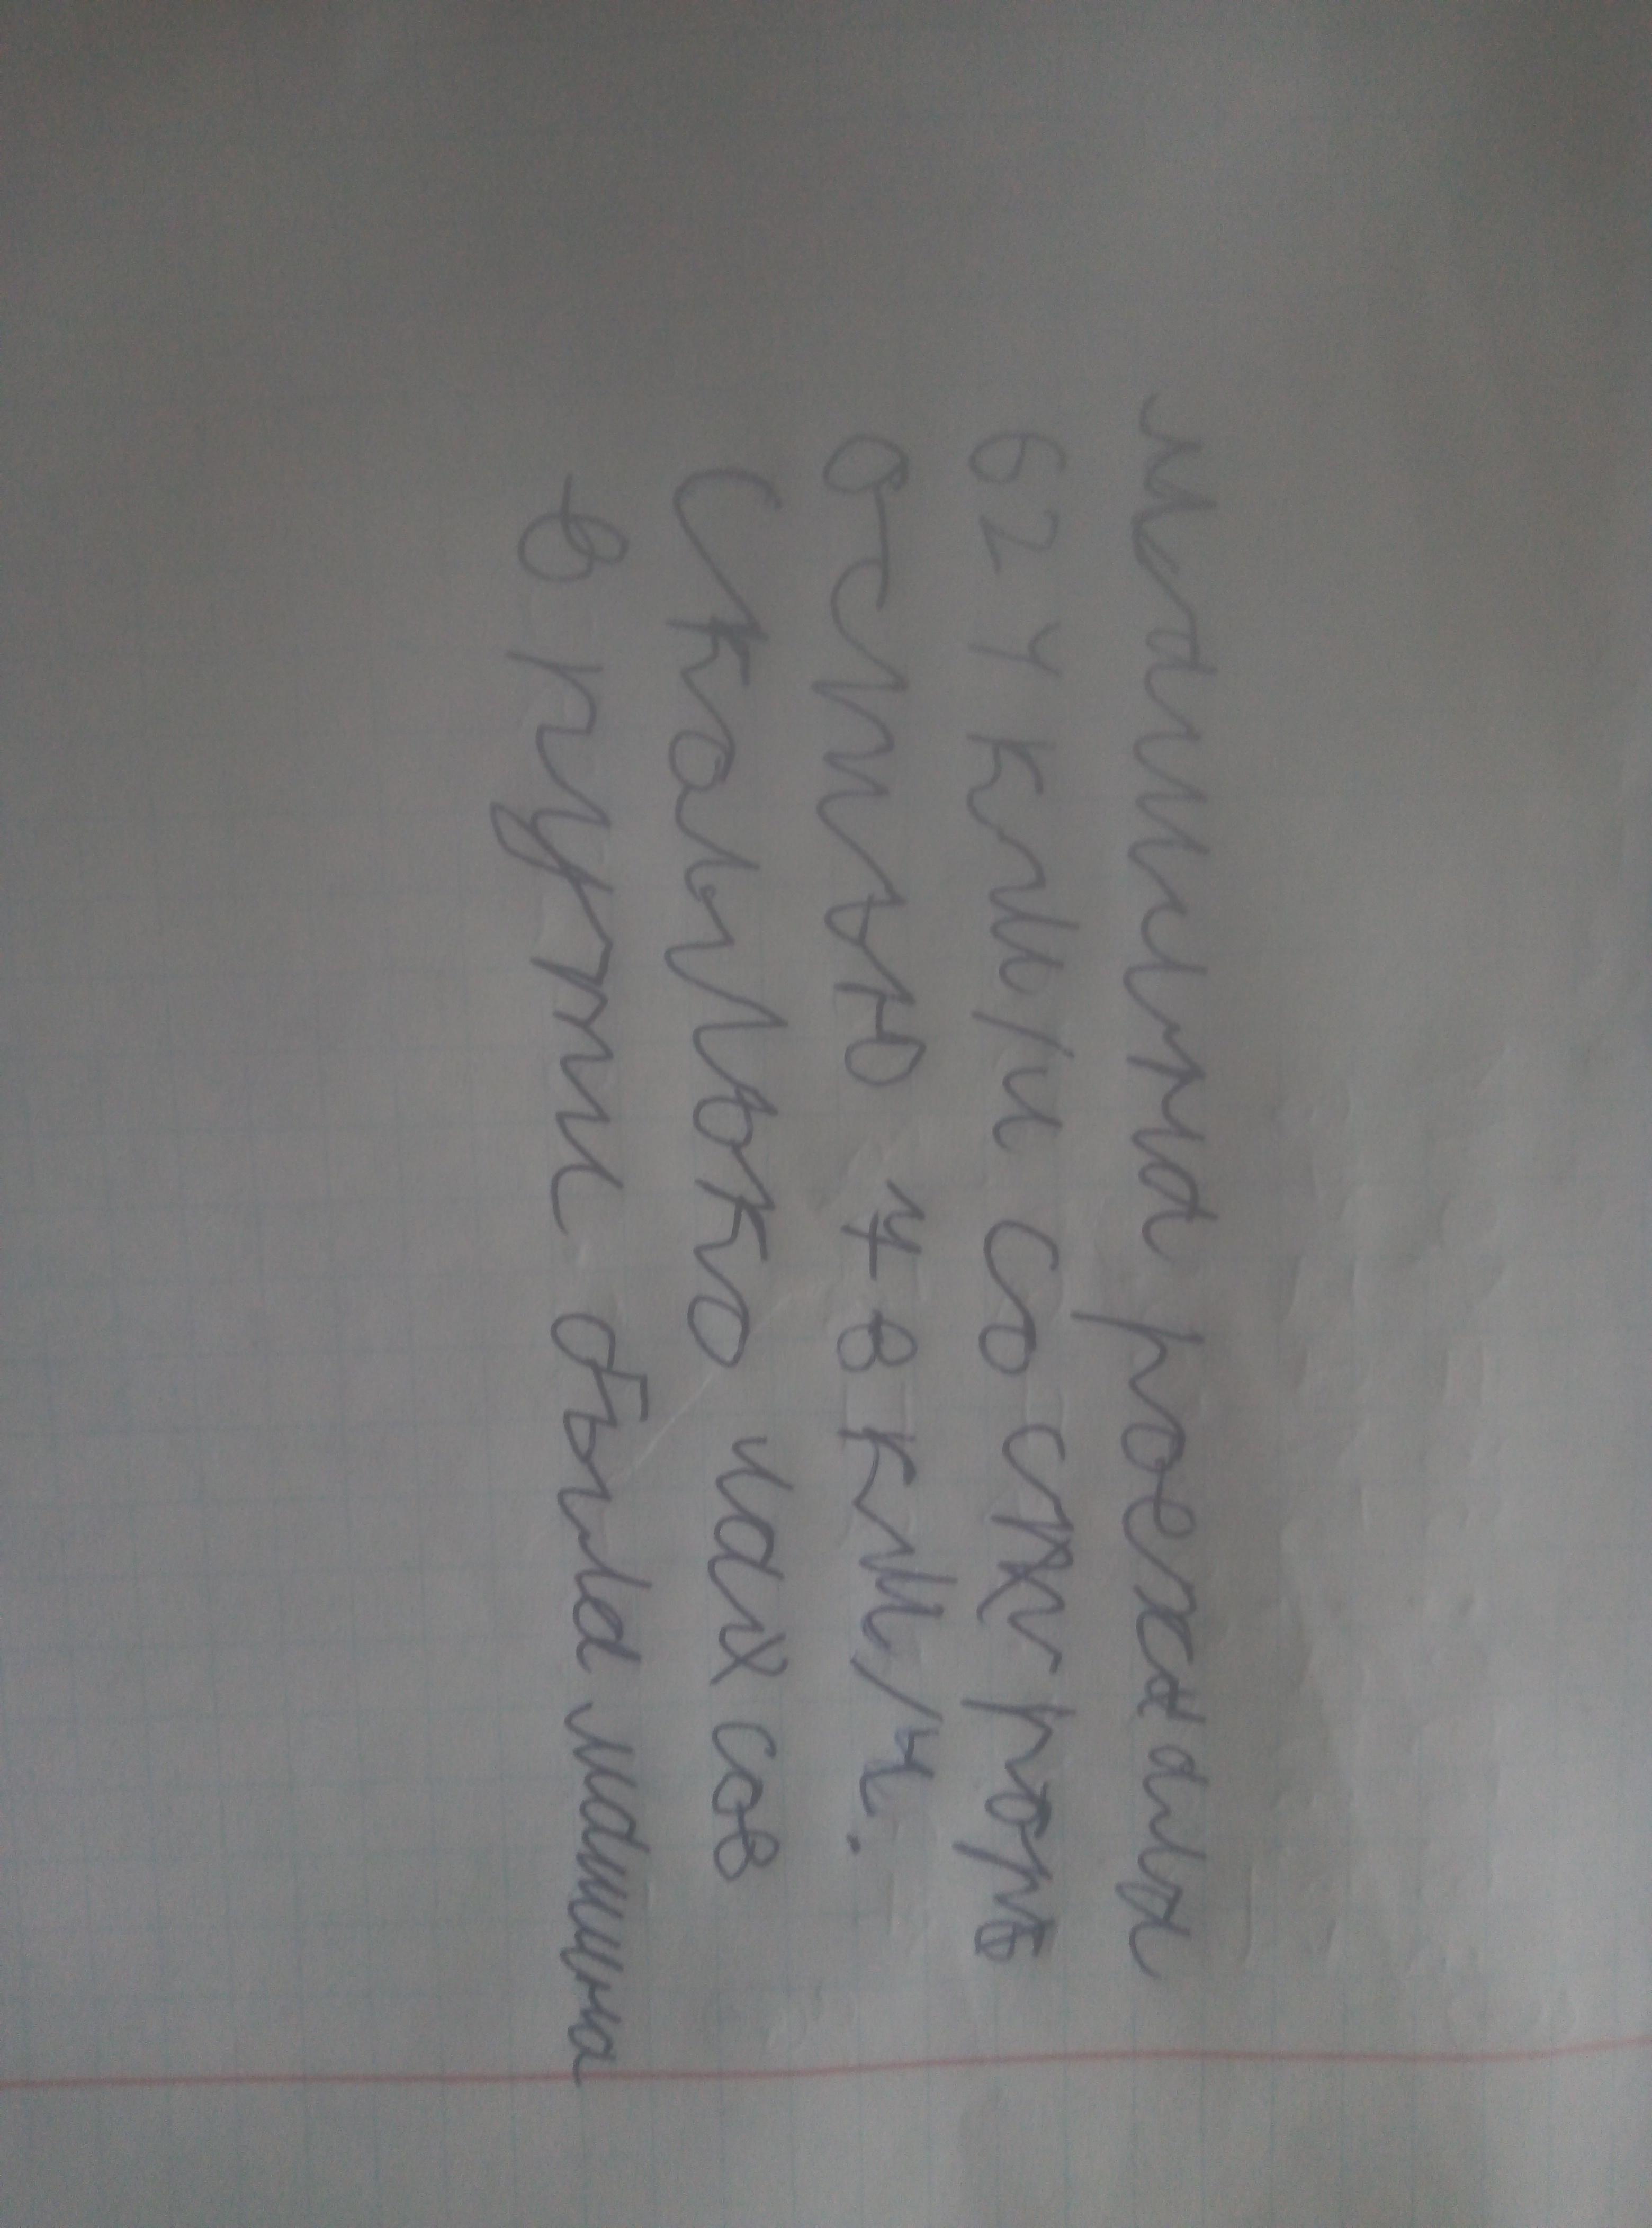 Машина проехала
624 км/ч со скорост
остью 78 км/ч.
Сколько часов
в пути была машина